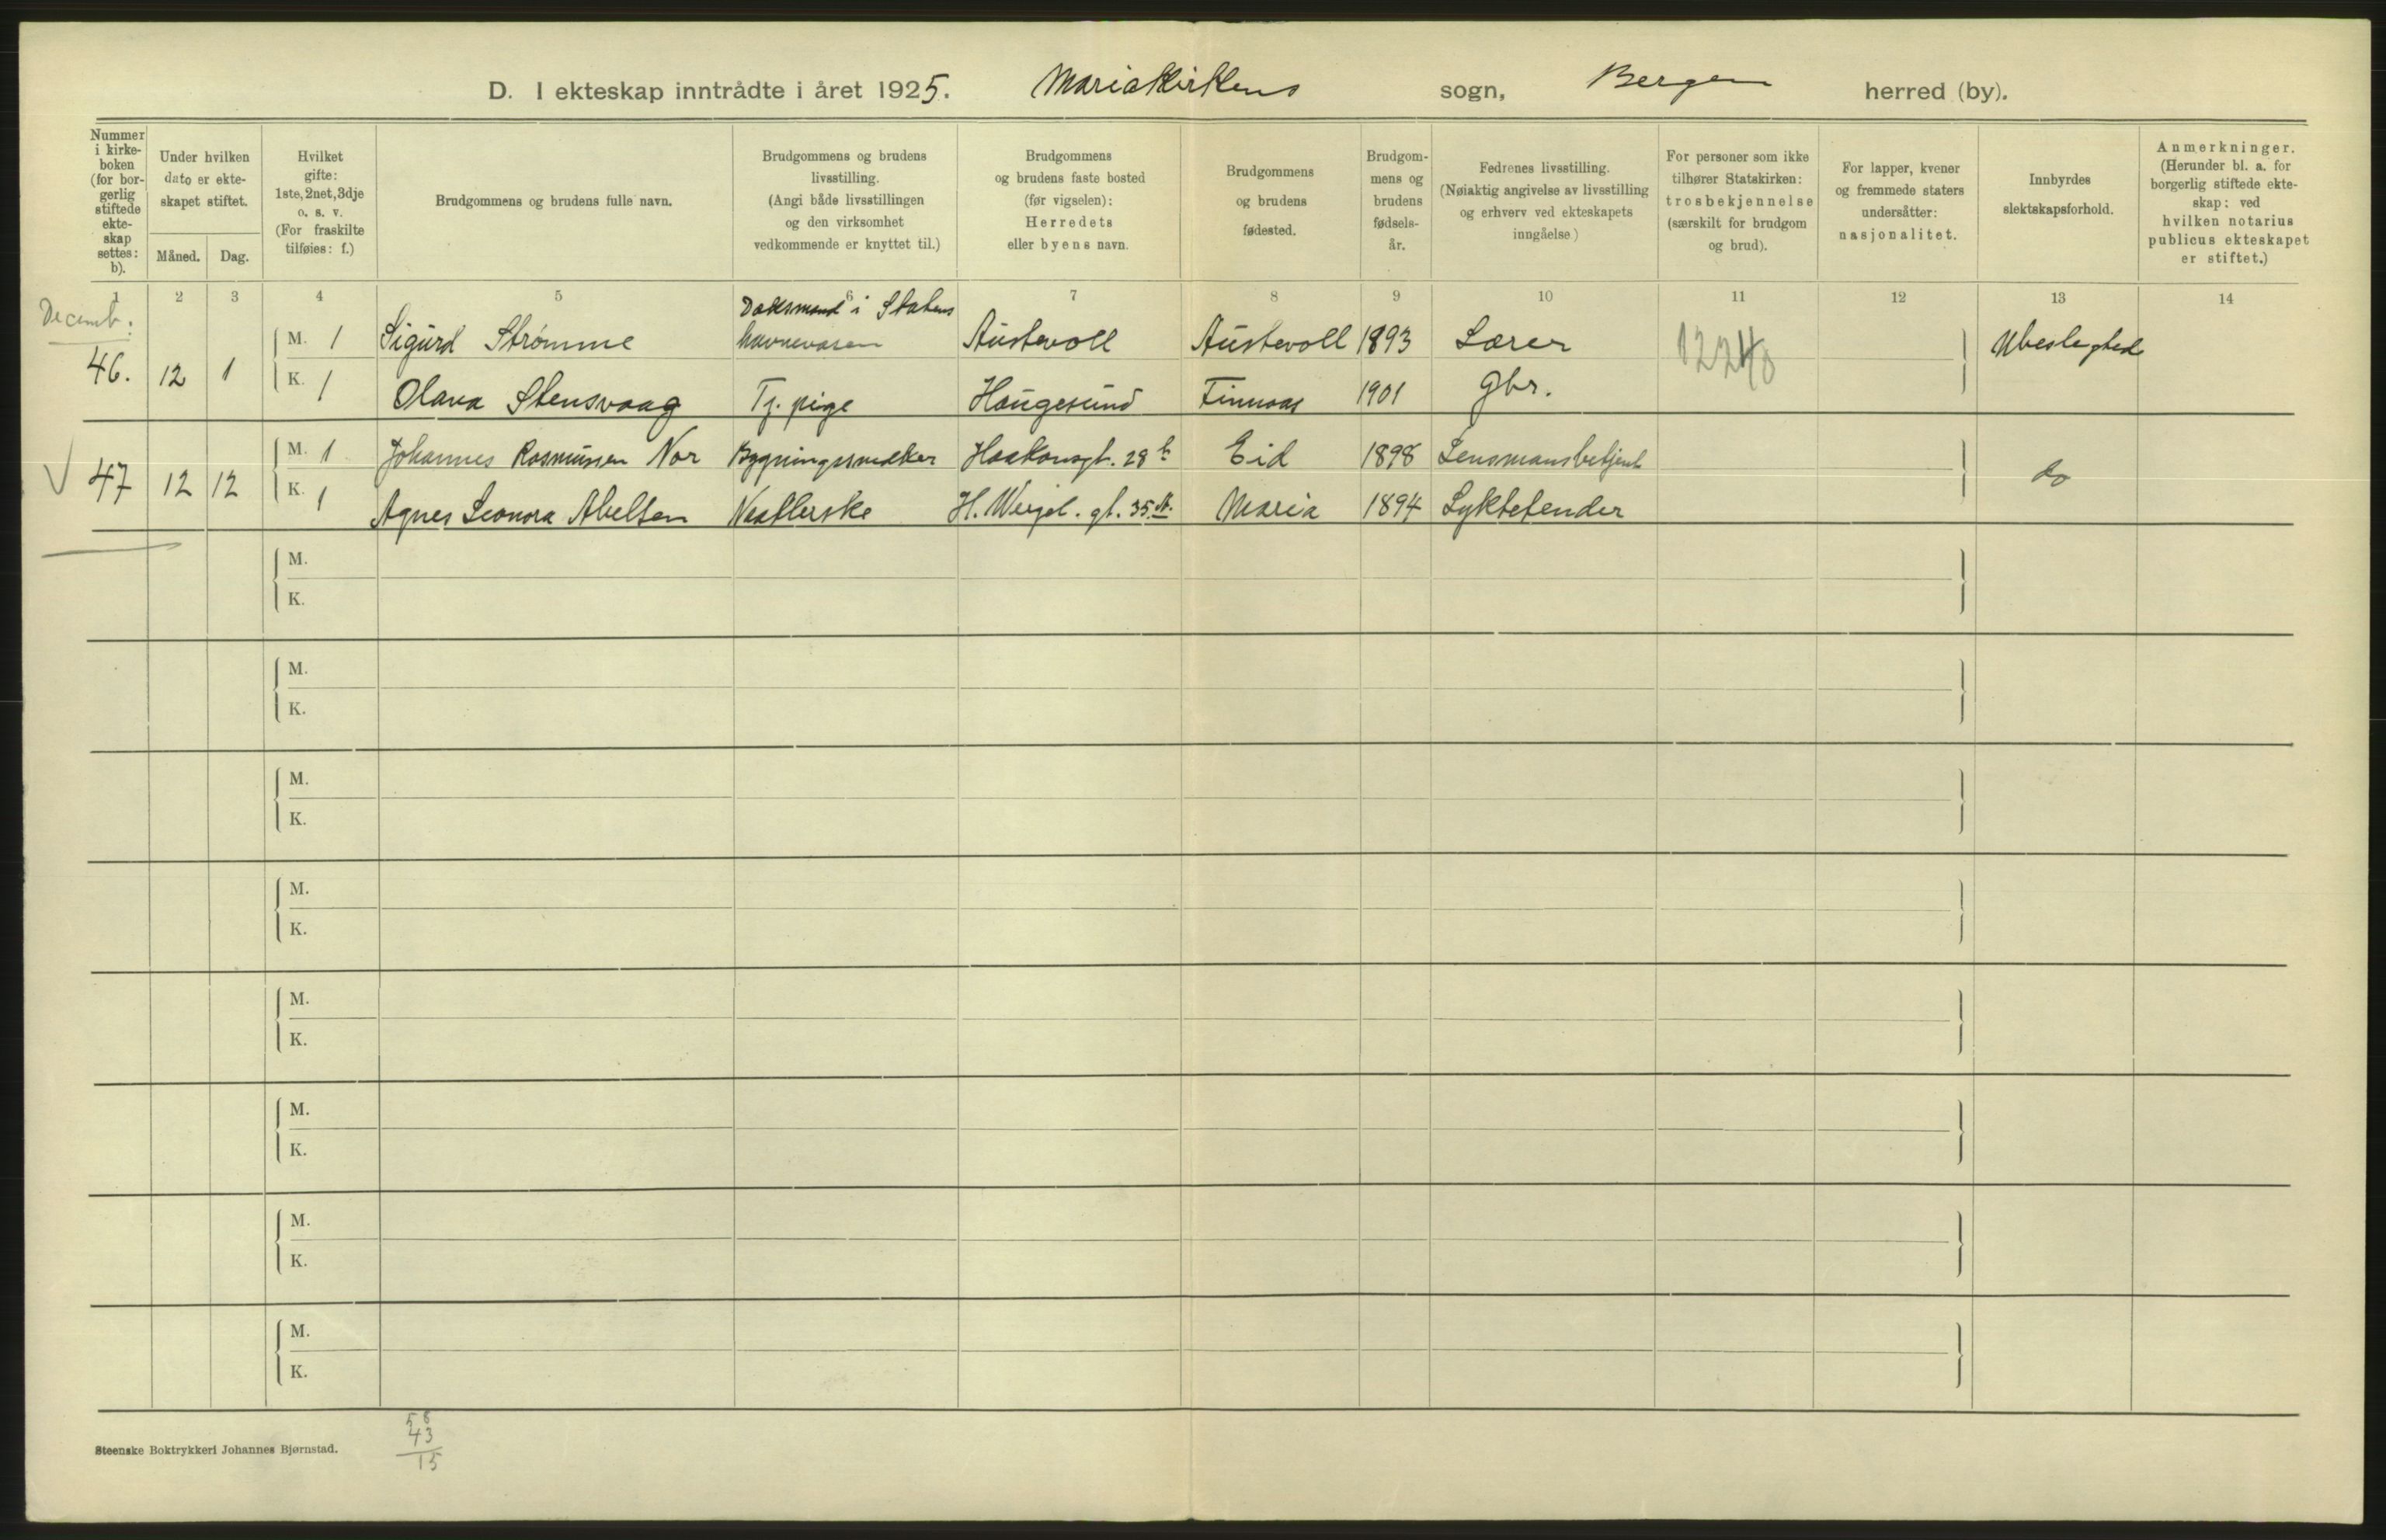 D. I ekteskap inntrådte i året 1925. Mariakirkens sogn, Bergen herred (by).
Nummer i kirke-boken (for bor-gerlig stiftede ekte-skap settes: b).
Under hvilken dato er ekte-skapet stiftet.
Måned. Dag.
Hvilket gifte: 1ste, 2net, 3dje o. s. v. (For fraskilte tilføies: f.)
Brudgommens og brudens fulle navn.
Brudgommens og brudens livsstilling. (Angi både livsstillingen og den virksomhet vedkommende er knyttet til.)
Brudgommens og brudens faste bosted (før vigselen): Herredets eller byens navn.
Brudgommens og brudens fødested.
Brudgom-mens og brudens fødsels-år.
Fedrenes livsstilling. (Nøiaktig angivelse av livsstilling og erhverv ved ekteskapets inngåelse.)
For personer som ikke tilhører Statskirken: trosbekjennelse (særskilt for brudgom og brud).
For lapper, kvener og fremmede staters undersåtter: nasjonalitet.
Innbyrdes slektskapsforhold.
Anmerkninger. (Herunder bl. a. for borgerlig stiftede ekte-skap: ved hvilken notarius publicus ekteskapet er stiftet.)
1 2 3 4 5 6 7 8 9 10 11 12 13 14
Decemb.
46. 12 1
M. 1 Sigurd Strømme Daksmand i Statens havnevæsen Austevoll Austevoll 1893 Lærer Ubeslegtede
K. 1 Olava Stensvaag Tj. pige Haugesund Finnaas 1901 Gbr.
47 12 12
M. 1 Johannes Rasmussen Nor Bygningssnekker Haakonsgt. 28 b Eid 1898 Lensmansbetjent do
K. 1 Agnes Leonora Abelsen H. Wergel. gt. 35 Maria 1894 Lyktetender
M.
K.
M.
K.
M.
K.
M.
K.
M.
K.
M.
K.
M.
K.
M.
K.
58
43
15
Steenske Boktrykkeri Johannes Bjørnstad.